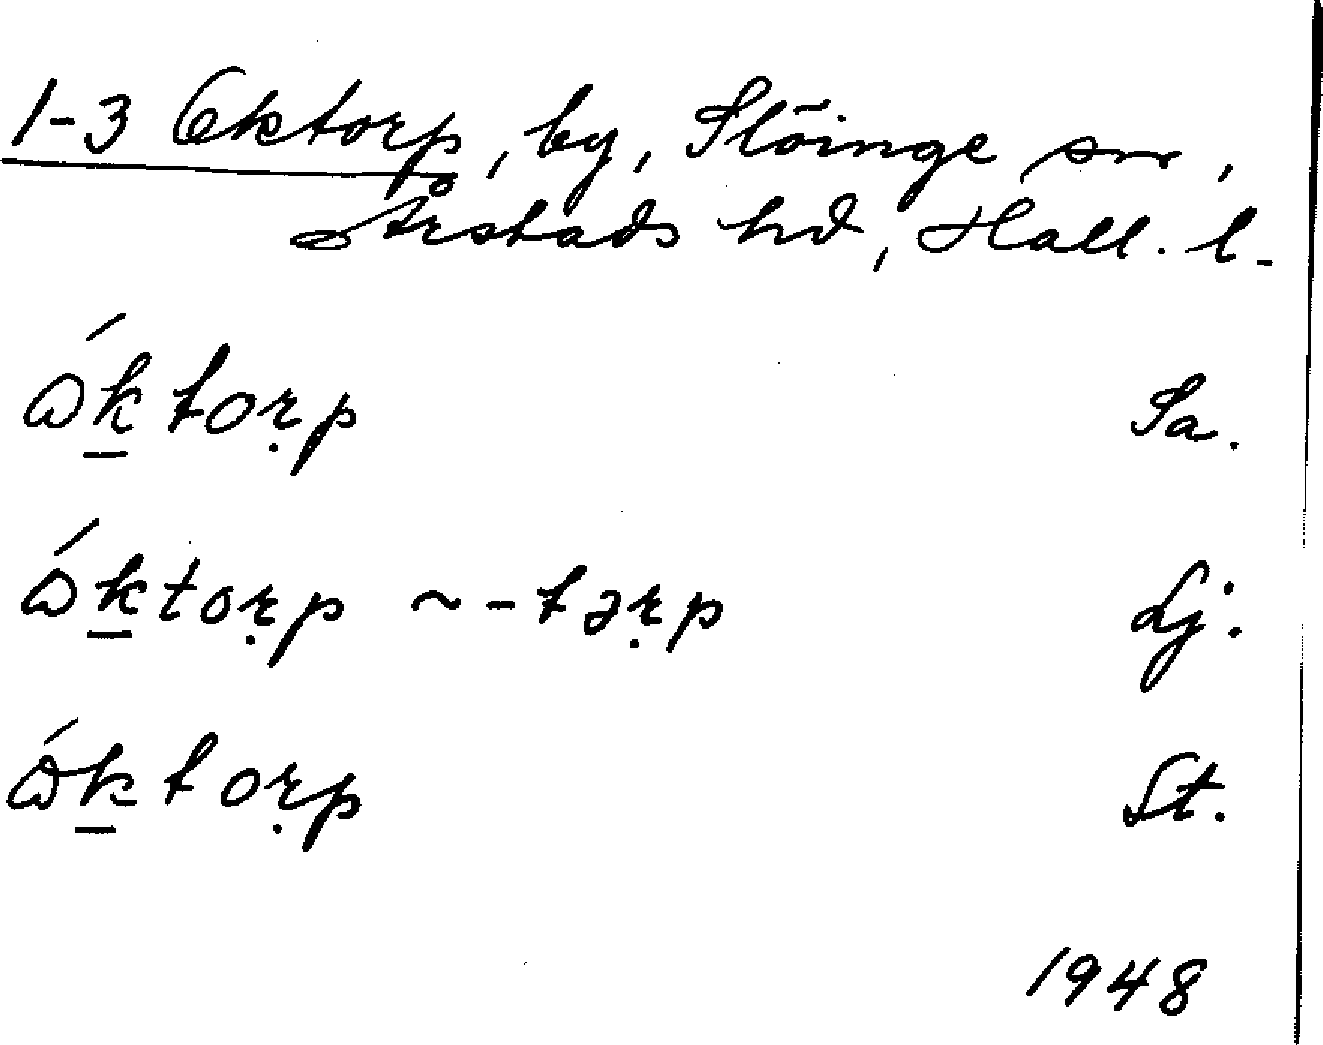 1-3 Oktorp, by, Slöinge sn,
Årstads hd, Hall. l.
ɷ́k̲toṛp Sa.
ɷ́k̲toṛp ~ -təṛp Lj.
ɷ́k̲toṛp St.
1948